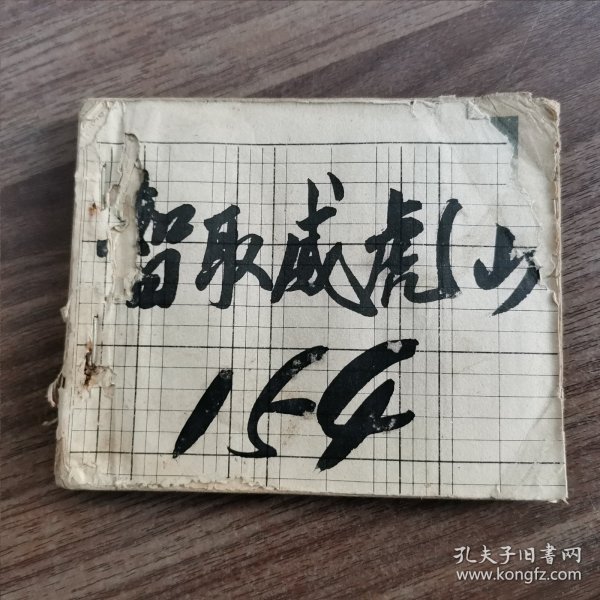 智取威虎山
154
孔夫子旧書网
www.kongfz.com